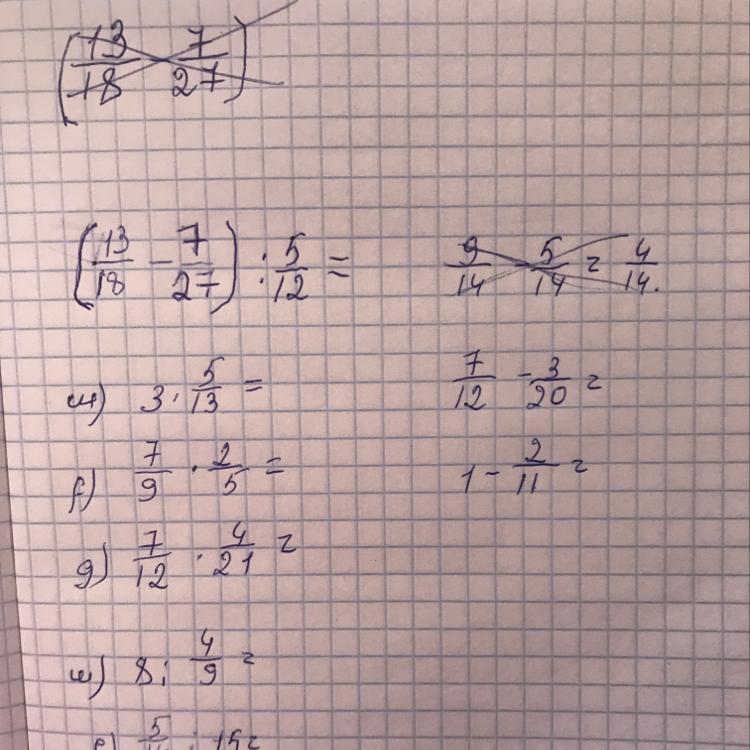 (13/18 7/27)
(13/18 - 7/27) : 5/12 =
9/14 - 5/14 = 4/14.
3 · 5/13 =
7/12 - 3/20 =
7/9 · 2/5 =
1 - 2/11 =
g) 7/12 · 4/21 =
8 : 4/9 =